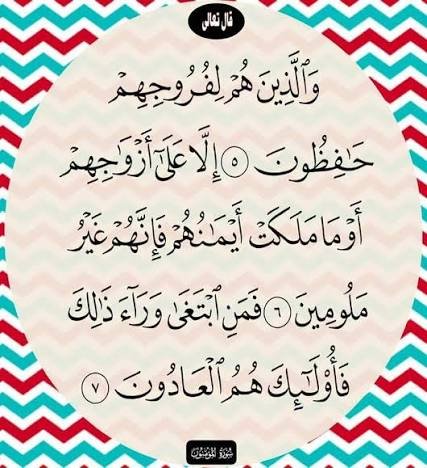 قال تعالى
وَالَّذِينَ هُمْ لِفُرُوجِهِمْ
حَـٰفِظُونَ ۝٥ إِلَّا عَلَىٰٓ أَزْوَٰجِهِمْ
أَوْ مَا مَلَكَتْ أَيْمَـٰنُهُمْ فَإِنَّهُمْ غَيْرُ
مَلُومِينَ ۝٦ فَمَنِ ٱبْتَغَىٰ وَرَآءَ ذَٰلِكَ
فَأُو۟لَـٰٓئِكَ هُمُ ٱلْعَادُونَ ۝٧
سورة المؤمنون